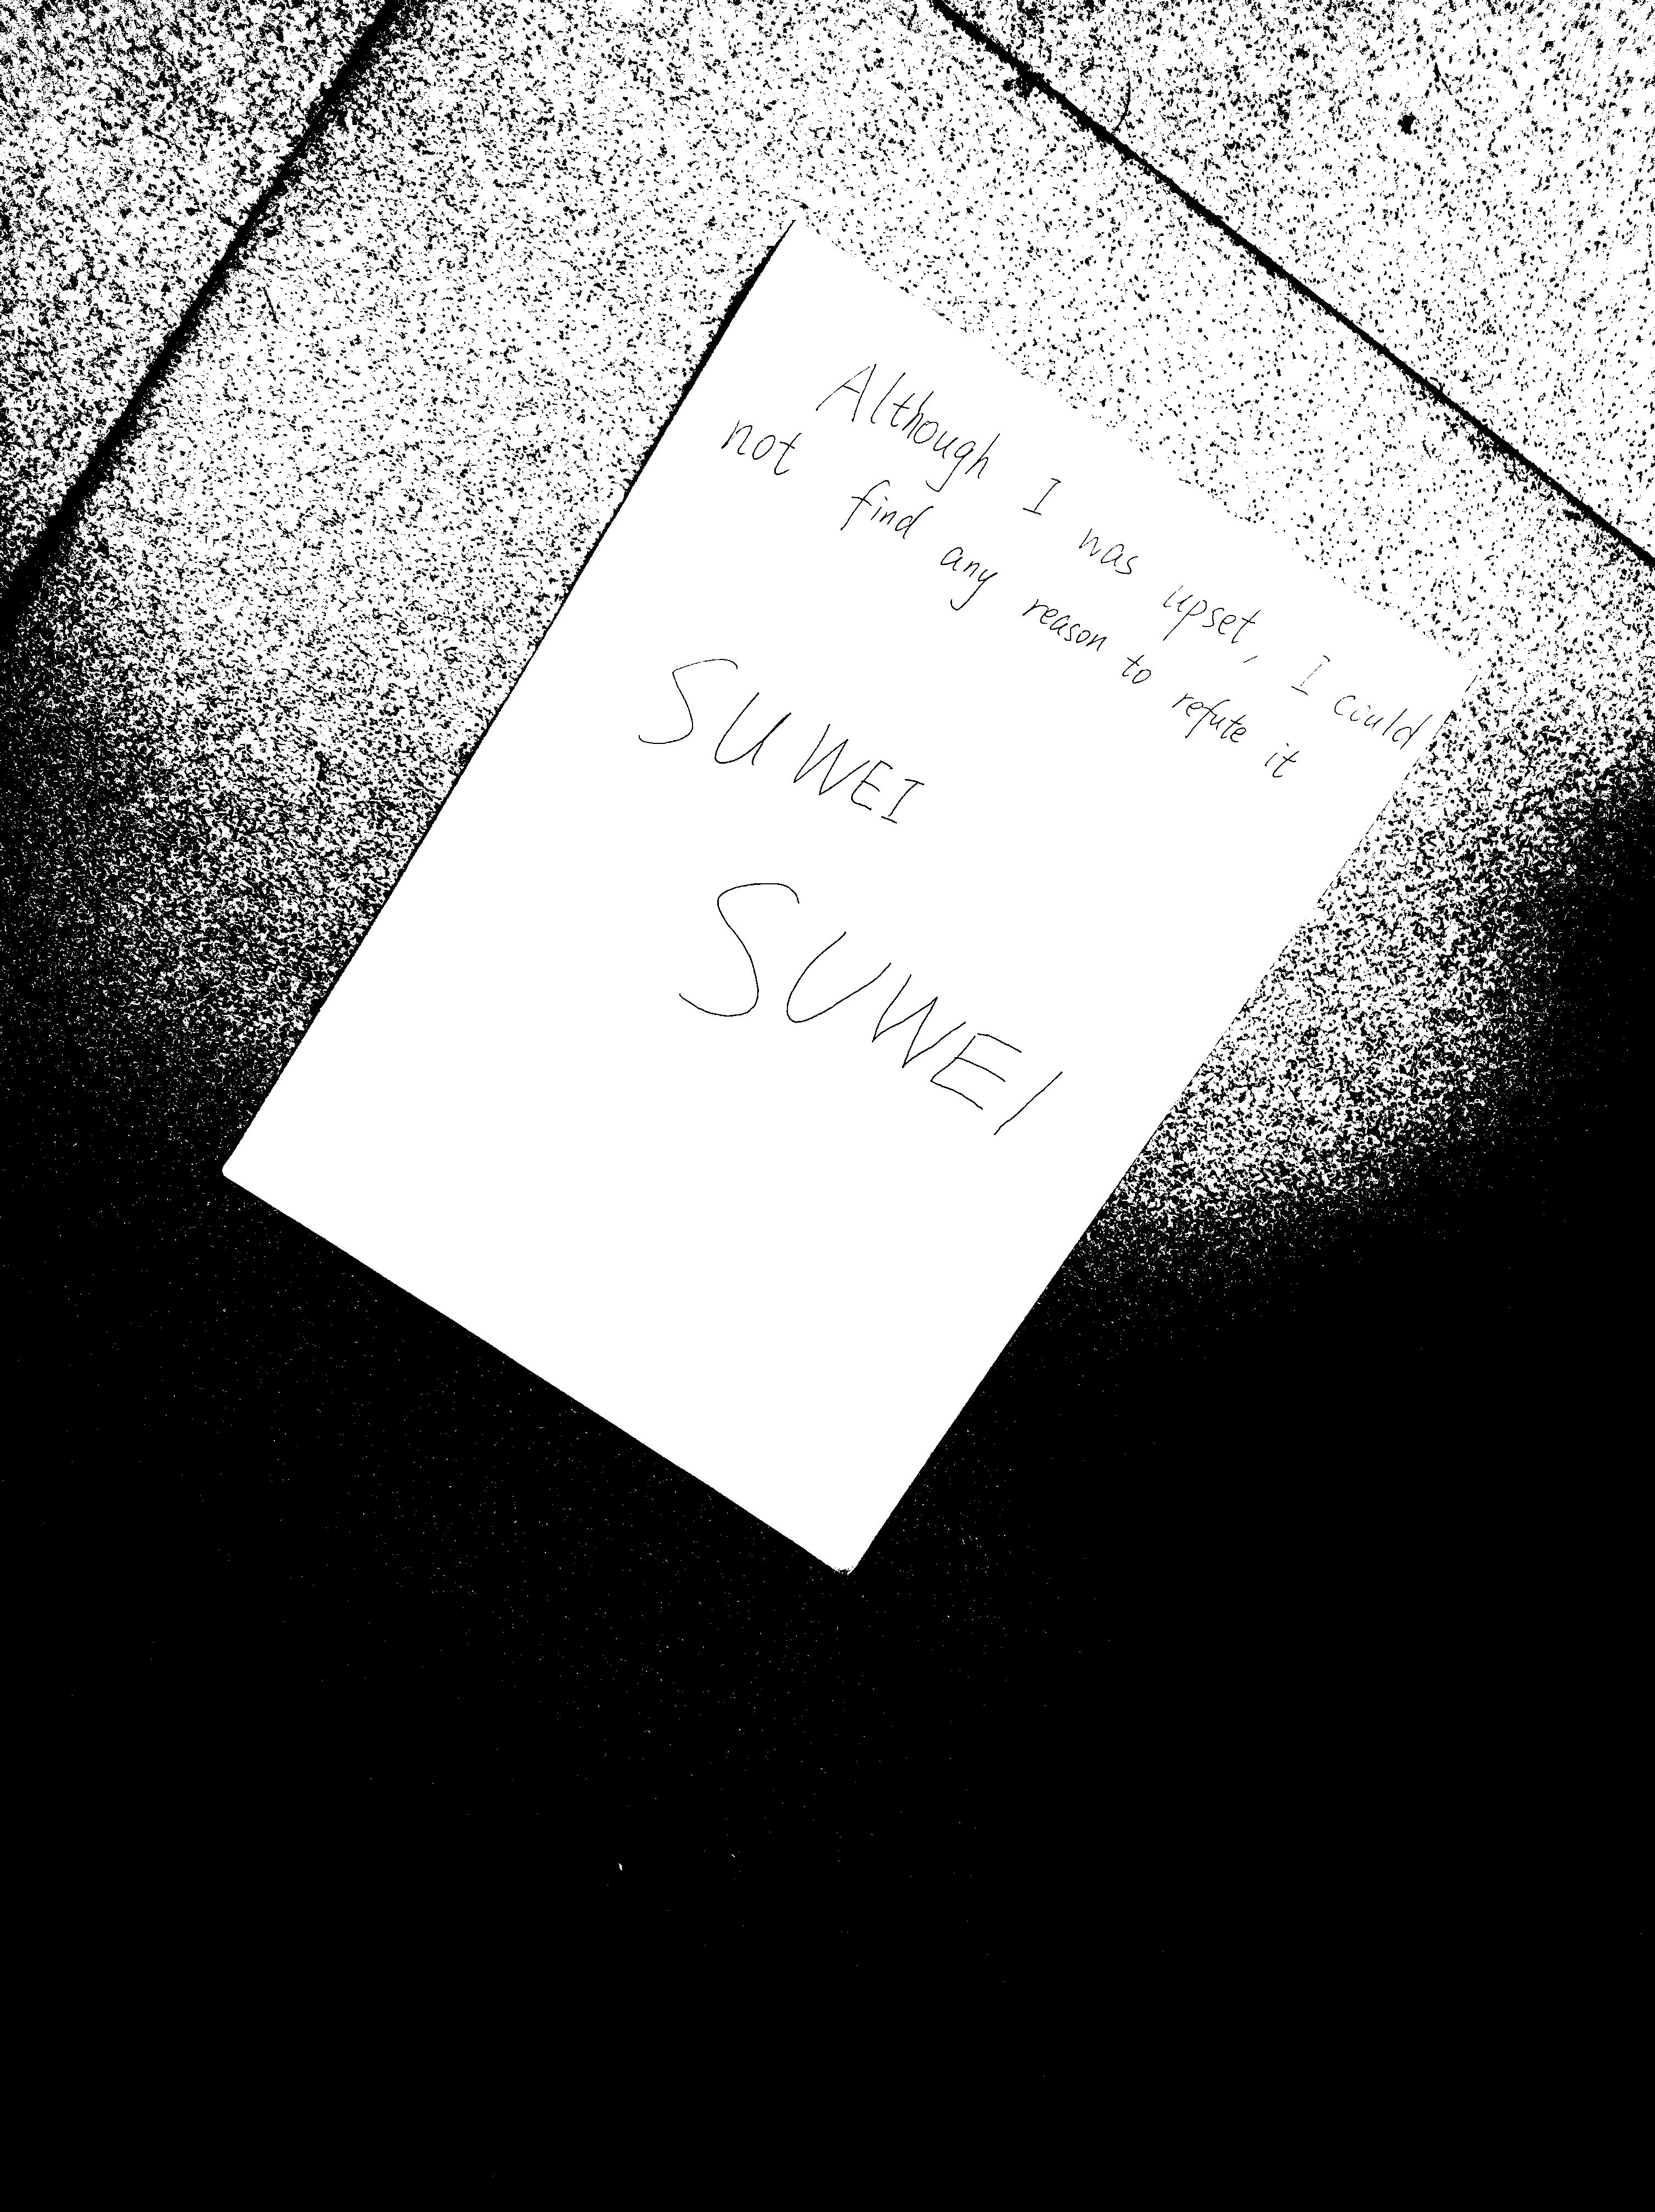 Although I was upset, I could
not find any reason to refute it
SU WEI
SUWEI